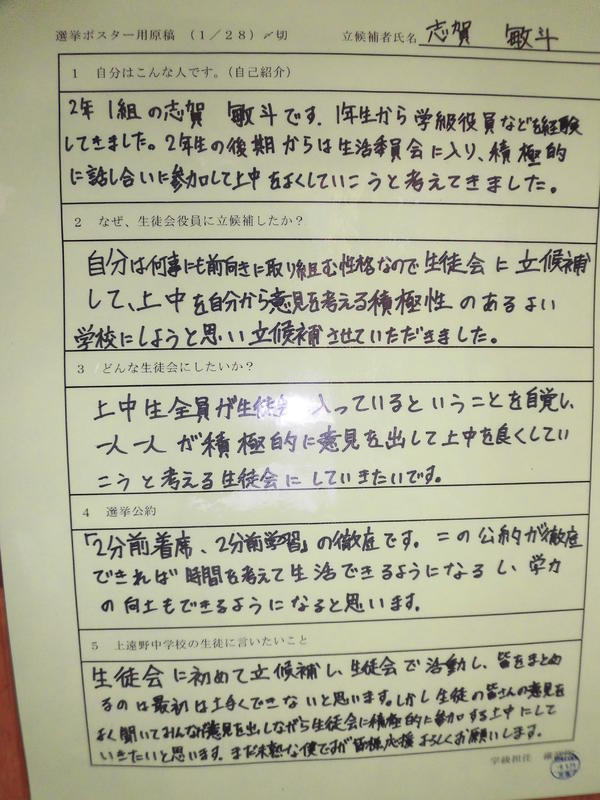 選挙ポスター用原稿 (1/28)〆切 立候補者氏名 志賀 敏斗
1 自分はこんな人です。(自己紹介)
2年1組の志賀 敏斗です。1年生から学級役員などを経験
してきました。2年生の後期からは生活委員会に入り、積極的
に話し合いに参加して上中をよくしていこうと考えてきました。
2 なぜ、生徒会役員に立候補したか?
自分は何事にも前向きに取り組む性格なので生徒会に立候補
して、上中を自分から意見を考える積極性のあるよい
学校にしようと思い立候補させていただきました。
3 どんな生徒会にしたいか?
上中生全員が生徒会 入っているということを自覚し、
一人一人が積極的に意見を出して上中を良くしてい
こうと考える生徒会にしていきたいです。
4 選挙公約
「2分前着席、2分前学習」の徹底です。この公約が徹底
できれば時間を考えて生活できるようになるし、学力
の向上もできるようになると思います。
5 上遠野中学校の生徒に言いたいこと
生徒会に初めて立候補し、生徒会で活動し、皆をまとめ
るのは最初は上手くできないと思います。しかし生徒の皆さんの意見を
よく聞いてみんなが意見を出しながら生徒会に積極的に参加する上中にして
いきたいと思います。まだ未熟な僕ですが皆様、応援よろしくお願いします。
学級担任